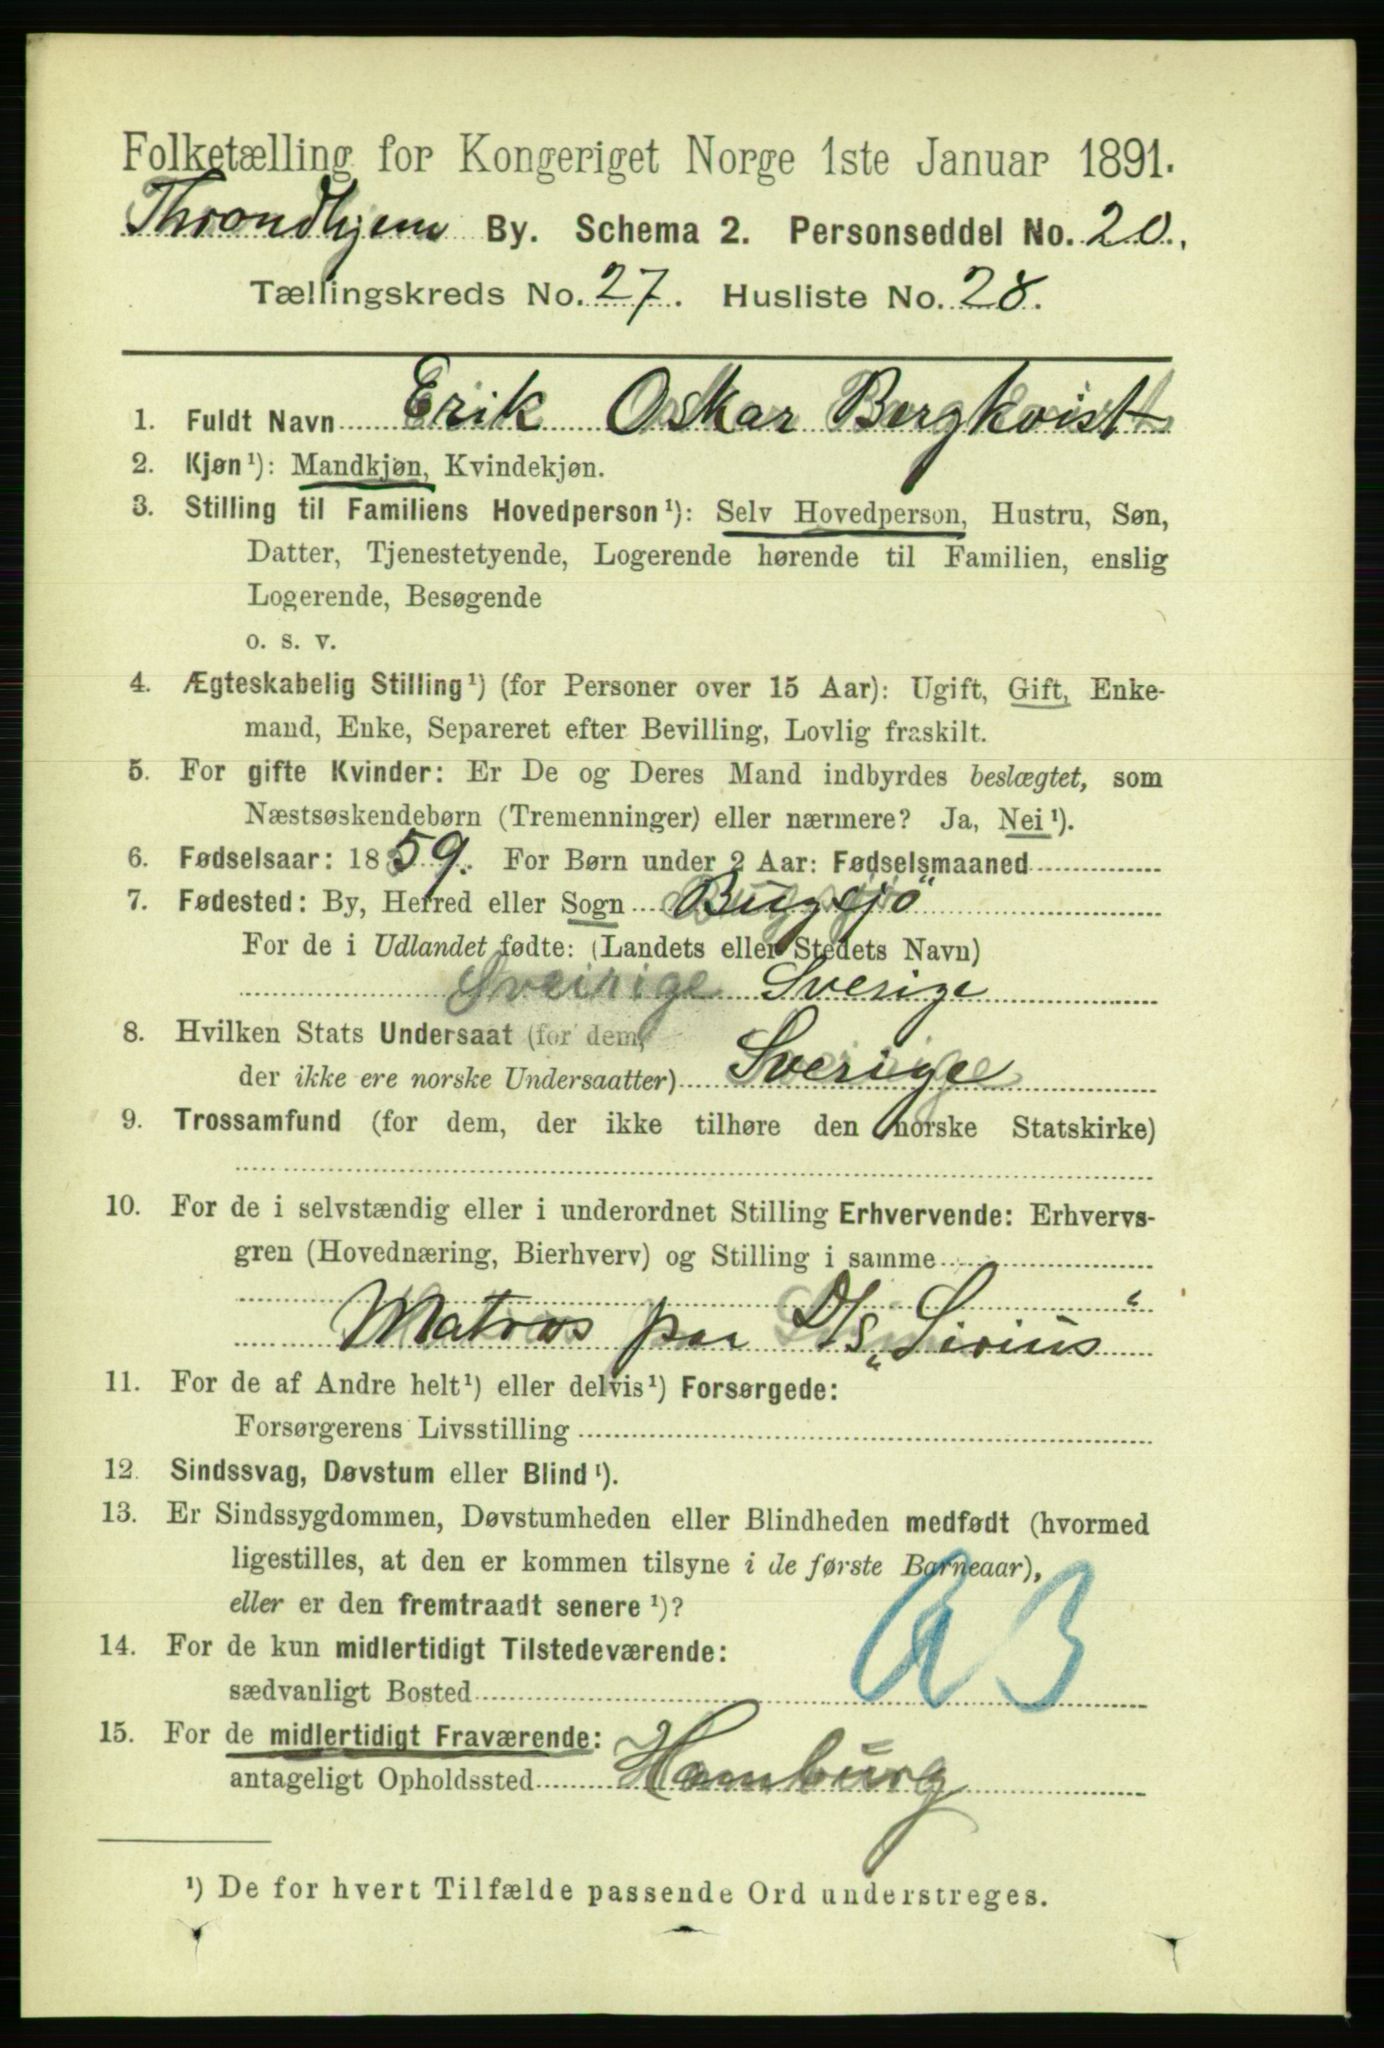 Folketælling for Kongeriget Norge 1ste Januar 1891.
Throndhjem By. Schema 2. Personseddel No. 20.
Tællingskreds No. 27. Husliste No. 28.
1. Fuldt Navn Erik Oskar Bergkvist
2. Kjøn ¹): Mandkjøn, Kvindekjøn.
3. Stilling til Familiens Hovedperson ¹): Selv Hovedperson, Hustru, Søn,
Datter, Tjenestetyende, Logerende hørende til Familien, enslig
Logerende, Besøgende
o. s. v.
4. Ægteskabelig Stilling ¹) (for Personer over 15 Aar): Ugift, Gift, Enke-
mand, Enke, Separeret efter Bevilling, Lovlig fraskilt.
5. For gifte Kvinder: Er De og Deres Mand indbyrdes beslægtet, som
Næstsøskendebørn (Tremenninger) eller nærmere? Ja, Nei ¹).
6. Fødselsaar: 1859. For Børn under 2 Aar: Fødselsmaaned
7. Fødested: By, Herred eller Sogn Bugsjö
For de i Udlandet fødte: (Landets eller Stedets Navn)
Sveirige Sverige
8. Hvilken Stats Undersaat (for dem,
der ikke ere norske Undersaatter) Sverige
9. Trossamfund (for dem, der ikke tilhøre den norske Statskirke)
10. For de i selvstændig eller i underordnet Stilling Erhvervende: Erhvervs-
gren (Hovednæring, Bierhverv) og Stilling i samme
Matros paa D/S „Sirius“
11. For de af Andre helt ¹) eller delvis ¹) Forsørgede:
Forsørgerens Livsstilling
12. Sindssvag, Døvstum eller Blind ¹).
13. Er Sindssygdommen, Døvstumheden eller Blindheden medfødt (hvormed
ligestilles, at den er kommen tilsyne i de første Barneaar),
eller er den fremtraadt senere ¹)?
14. For de kun midlertidigt Tilstedeværende:
sædvanligt Bosted
15. For de midlertidigt Fraværende:
antageligt Opholdssted Hamburg
¹) De for hvert Tilfælde passende Ord understreges.